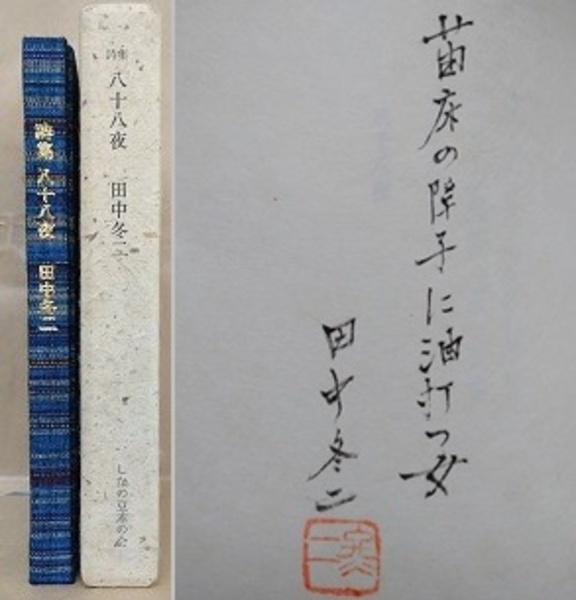 詩集 八十八夜 田中冬二
詩集 八十八夜 田中冬二
しなの豆本の会
苗床の障子に油打つ女
田中冬二